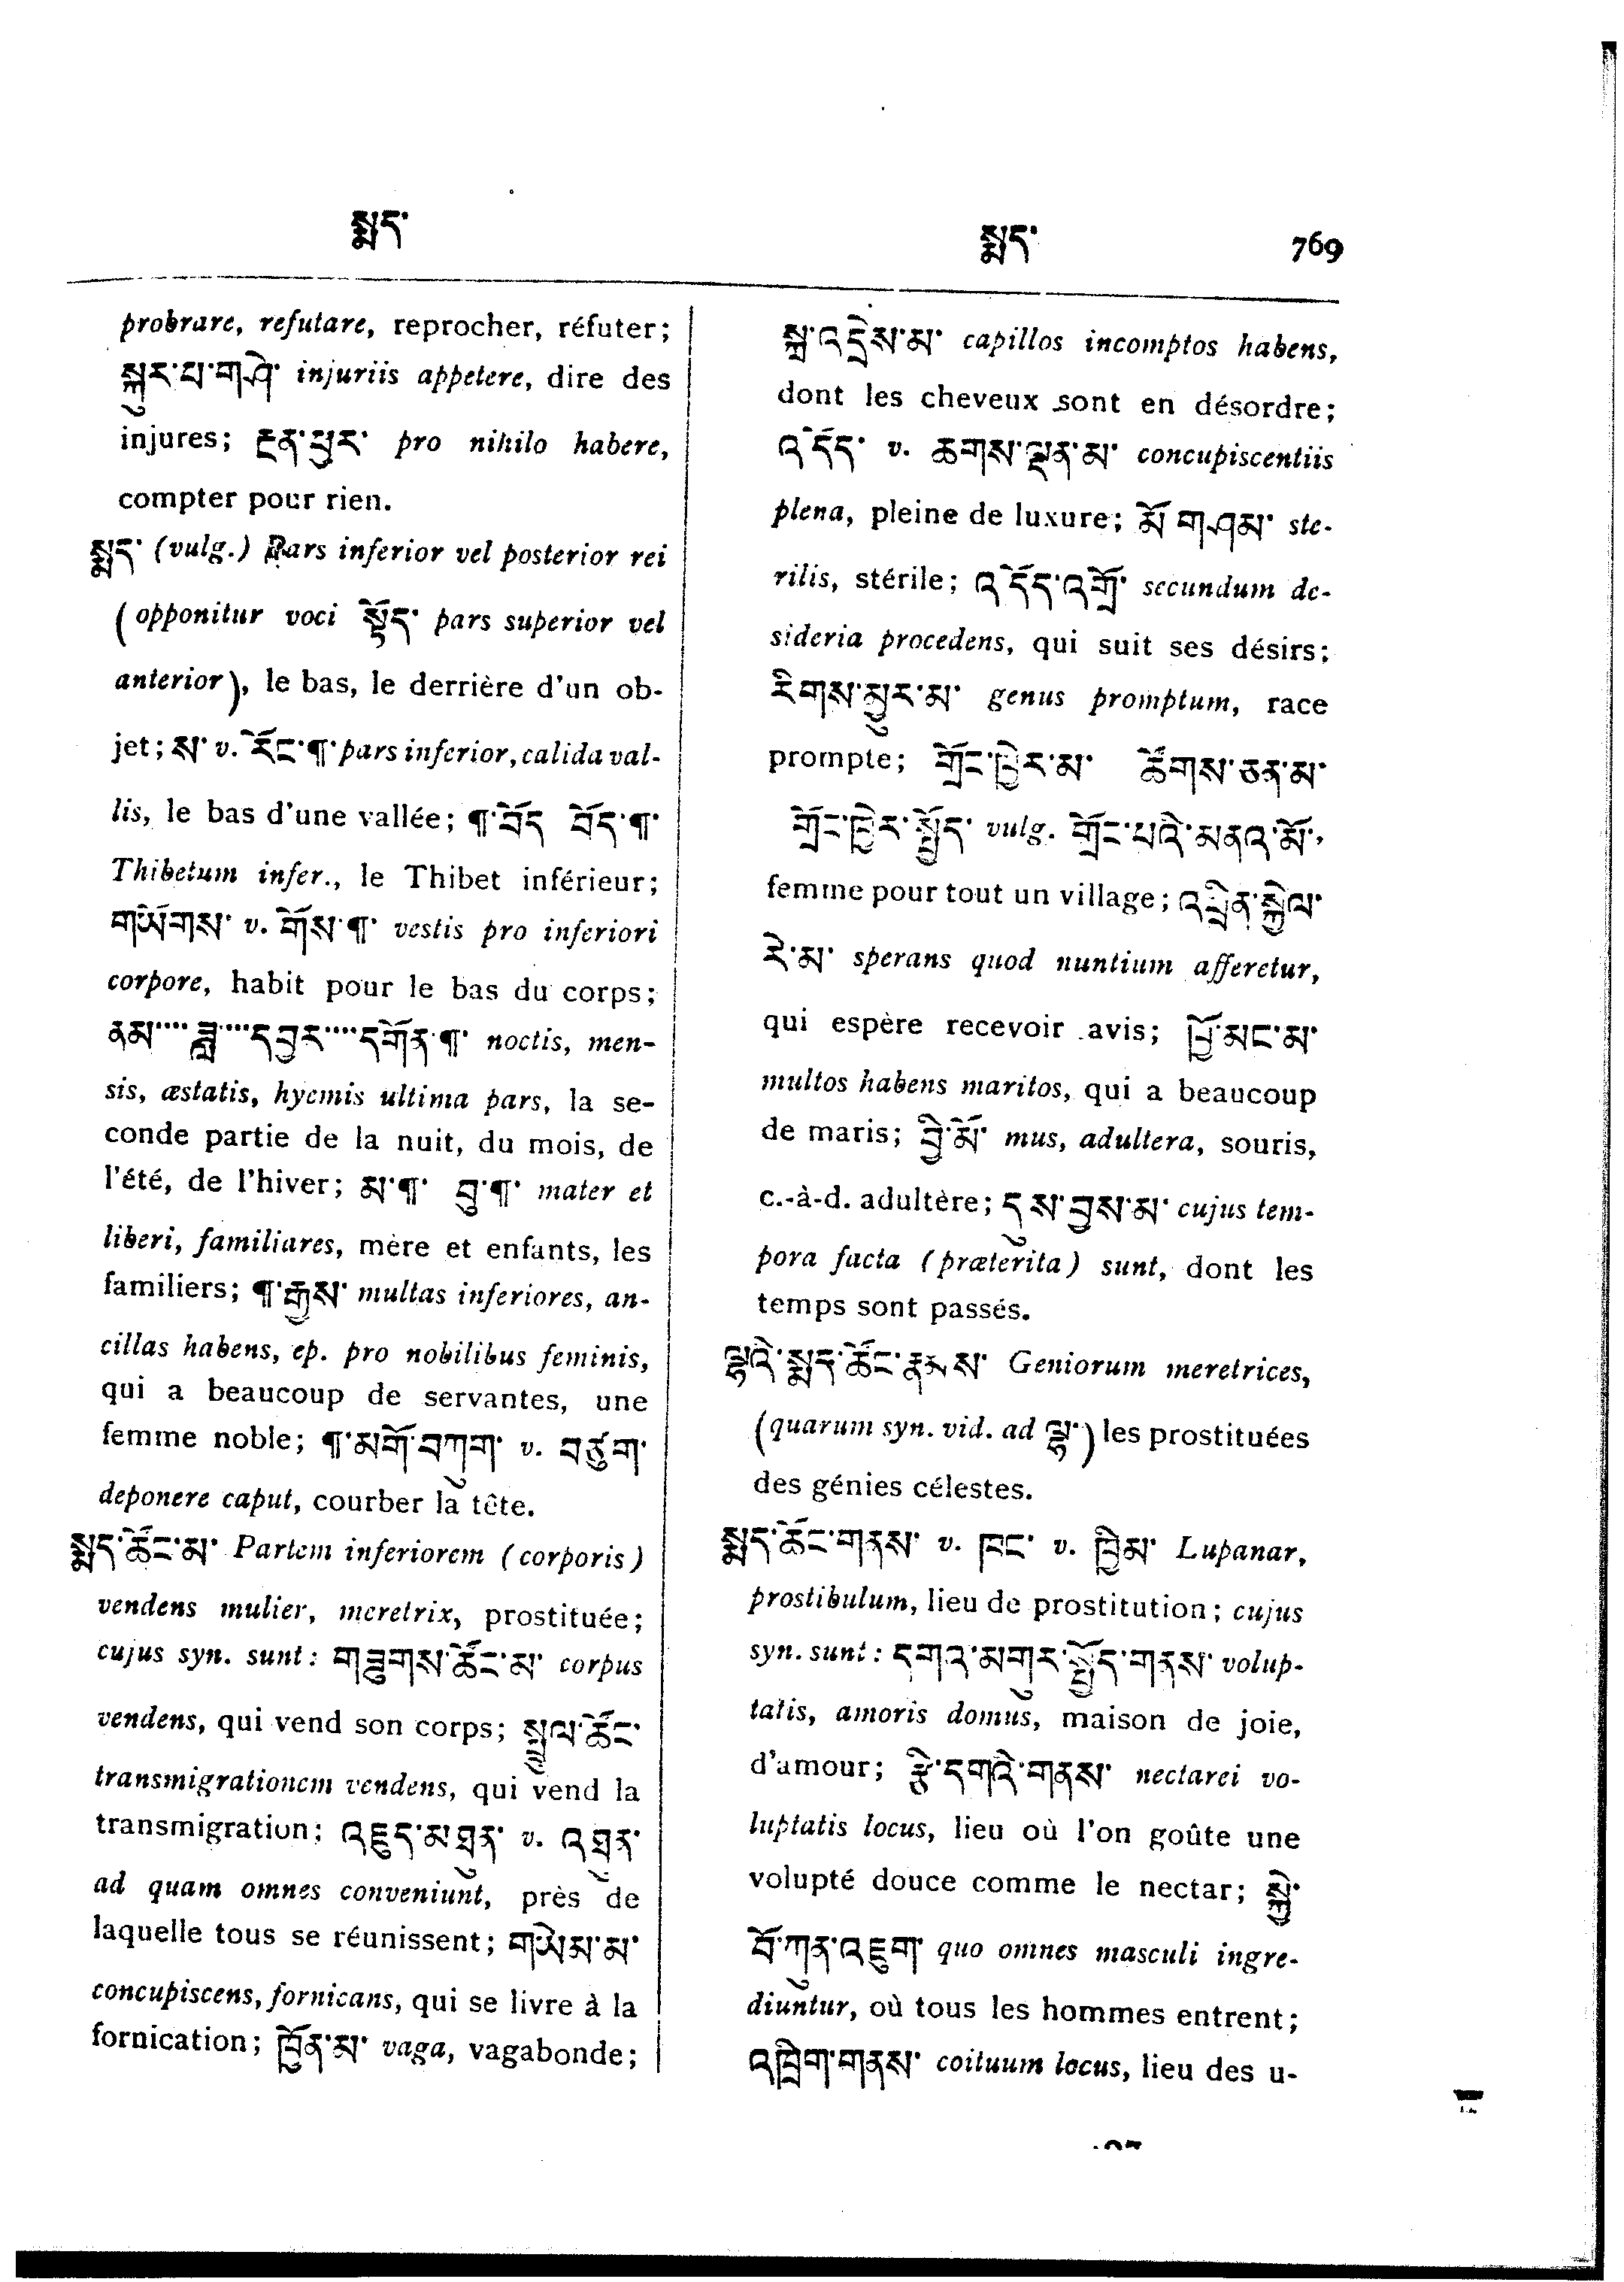 སྨད་
སྨད་ 769
probrare, refutare, reprocher, réfuter;
སྐུར་པ་གཤེ་ injuriis appetere, dire des
injures; རྔན་ཕུར་ pro nihilo habere,
compter pour rien.
སྨད་ (vulg.) Pars inferior vel posterior rei
(opponitur voci སྟོད་ pars superior vel
anterior), le bas, le derrière d'un ob-
jet; ས་ v. རོང་¶་ pars inferior, calida val-
lis, le bas d'une vallée; ¶་བོད བོད་¶་
Thibetum infer., le Thibet inférieur;
གཡོགས་ v. གོས་¶་ vestis pro inferiori
corpore, habit pour le bas du corps;
ནམ་་་་ཟླ་་་་དབྱར་་་་དགོན་¶་ noctis, men-
sis, æstatis, hyemis ultima pars, la se-
conde partie de la nuit, du mois, de
l'été, de l'hiver; མ་¶་ བུ་¶་ mater et
liberi, familiares, mère et enfants, les
familiers; ¶་རྒྱས་ multas inferiores, an-
cillas habens, ep. pro nobilibus feminis,
qui a beaucoup de servantes, une
femme noble; ¶་མགོ་བཀུག་ v. བཙུག་
deponere caput, courber la tête.
སྨད་ཚོང་མ་ Partem inferiorem (corporis)
vendens mulier, meretrix, prostituée;
cujus syn. sunt: གཟུགས་ཚོང་མ་ corpus
vendens, qui vend son corps; སྤྲུལ་ཚོང་
transmigrationem vendens, qui vend la
transmigration; འཇུད་མཐུན་ v. འཐུན་
ad quam omnes conveniunt, près de
laquelle tous se réunissent; གཡེམ་མ་
concupiscens, fornicans, qui se livre à la
fornication; ཁྱོན་མ་ vaga, vagabonde;
སྐྲ་འདྲེས་མ་ capillos incomptos habens,
dont les cheveux sont en désordre;
འདོད་ v. ཆགས་ལྡན་མ་ concupiscentiis
plena, pleine de luxure; མོ་གཤམ་ ste-
rilis, stérile; འདོད་འགྲོ་ secundum de-
sideria procedens, qui suit ses désirs;
རིགས་མྱུར་མ་ genus promptum, race
prompte; གྲོང་ཁྱེར་མ་ ཚོགས་ཅན་མ་
གྲོང་ཁྱེར་སྤྱོད་ vulg. གྲོང་པའི་མནའ་མོ་,
femme pour tout un village; འཕྲིན་སྐྱེལ་
རེ་མ་ sperans quod nuntium afferetur,
qui espère recevoir avis; ཕྱོ་མང་མ་
multos habens maritos, qui a beaucoup
de maris; བྱི་མོ་ mus, adultera, souris,
c.-à-d. adultère; དུས་བྱས་མ་ cujus tem-
pora facta (præterita) sunt, dont les
temps sont passés.
ལྷའི་སྨད་ཚོང་རྣམས་ Geniorum meretrices,
(quarum syn. vid. ad ལྷ་) les prostituées
des génies célestes.
སྨད་ཚོང་གནས་ v. ཁང་ v. ཁྱིམ་ Lupanar,
prostibulum, lieu de prostitution; cujus
syn. sunt: དགའ་མགུར་སྤྱོད་གནས་ volup-
tatis, amoris domus, maison de joie,
d'amour; རྩེ་དགའི་གནས་ nectarei vo-
luptatis locus, lieu où l'on goûte une
volupté douce comme le nectar; སྐྱེ་
བོ་ཀུན་འཇུག་ quo omnes masculi ingre-
diuntur, où tous les hommes entrent;
འཁྲིག་གནས་ coituum locus, lieu des u-